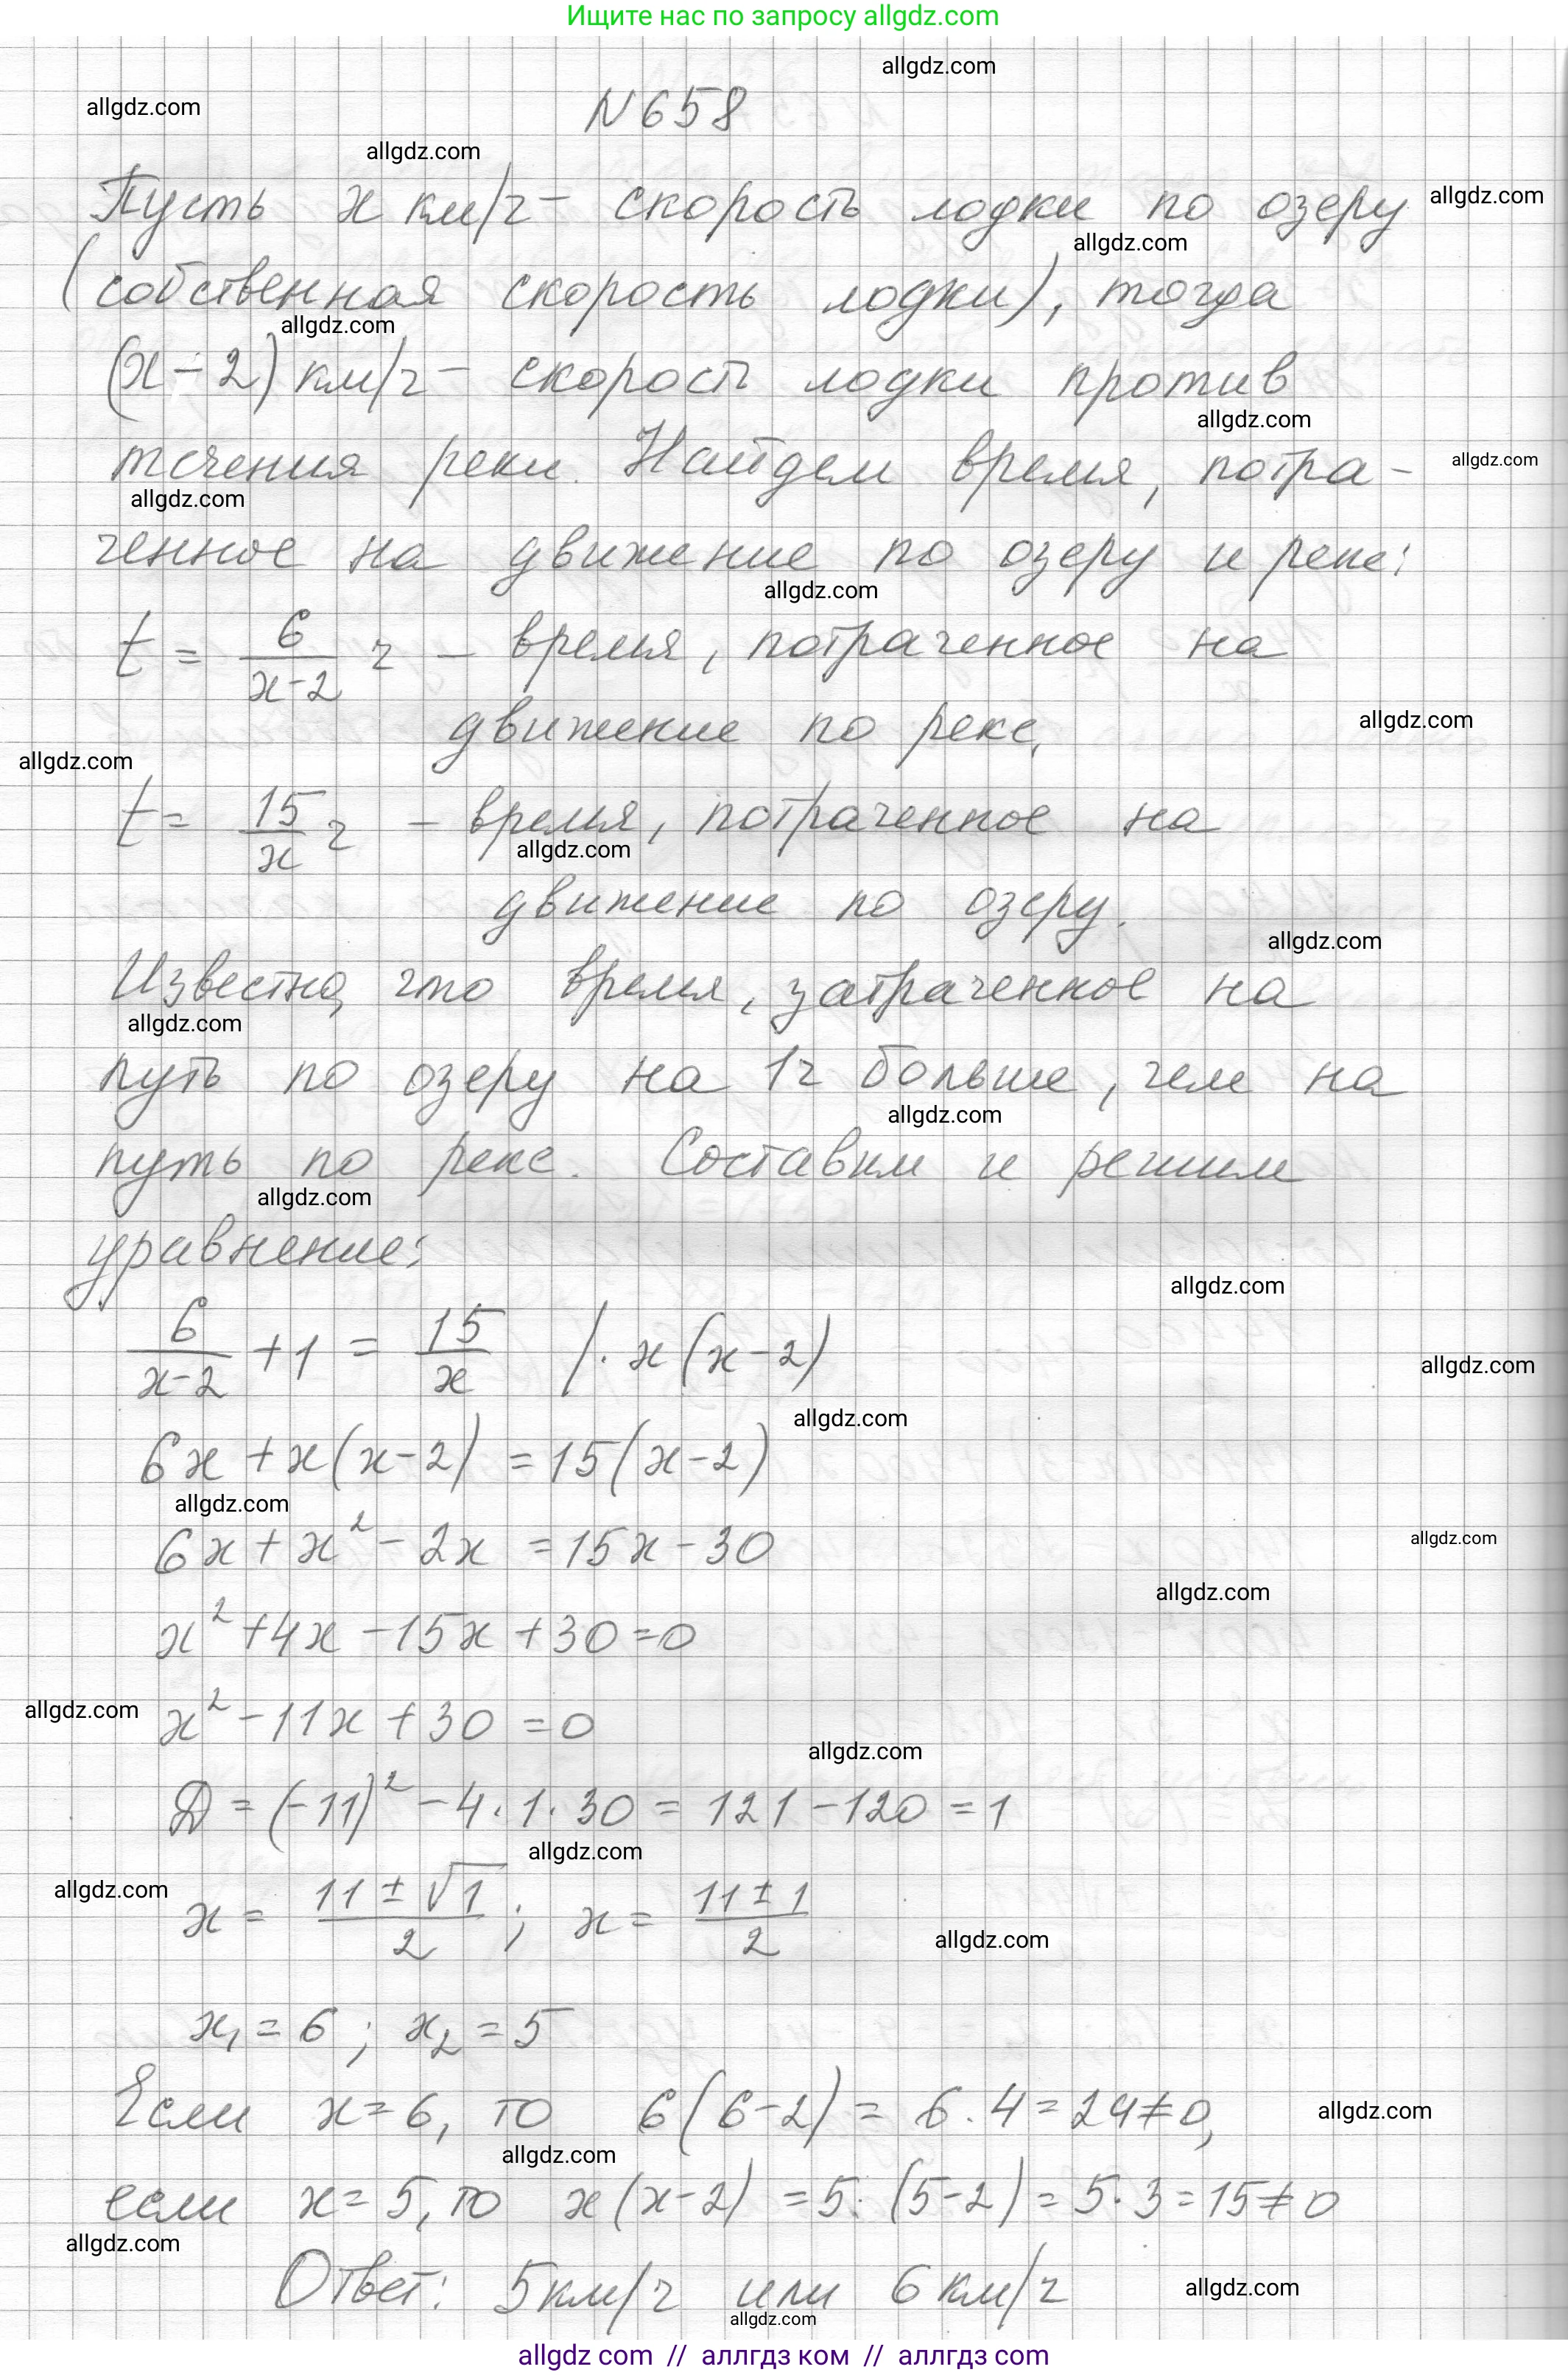 Ищите нас по запросу allgdz.com
allgdz.com
allgdz.com
N 658
allgdz.com
Пусть x км/ч – скорость лодки по озеру
allgdz.com
allgdz.com
(собственная скорость лодки), тогда
allgdz.com
(x-2) км/ч – скорость лодки против
allgdz.com
течения реки. Найдем время, потра-
allgdz.com
allgdz.com
ченное на движение по озеру и реке:
allgdz.com
t = 6/(x-2) ч – время, потраченное на
движение по реке,
allgdz.com
allgdz.com
t = 15/x ч – время, потраченное на
allgdz.com
движение по озеру.
allgdz.com
Известно, что время, затраченное на
allgdz.com
путь по озеру на 1ч больше, чем на
allgdz.com
путь по реке. Составим и решим
allgdz.com
уравнение:
allgdz.com
6/(x-2) + 1 = 15/x /· x(x-2)
allgdz.com
allgdz.com
6x + x(x-2) = 15(x-2)
allgdz.com
6x + x² - 2x = 15x - 30
allgdz.com
allgdz.com
x² + 4x - 15x + 30 = 0
allgdz.com
x² - 11x + 30 = 0
allgdz.com
D = (-11)² - 4·1·30 = 121 - 120 = 1
allgdz.com
allgdz.com
x = (11 ± √1)/2 ; x = (11 ± 1)/2
allgdz.com
x₁ = 6 ; x₂ = 5
Если x = 6, то 6(6-2) = 6·4 = 24 ≠ 0,
allgdz.com
allgdz.com
если x = 5, то x(x-2) = 5·(5-2) = 5·3 = 15 ≠ 0
allgdz.com
Ответ: 5 км/ч или 6 км/ч
allgdz.com
allgdz.com
allgdz com // аллгдз ком // аллгдз com